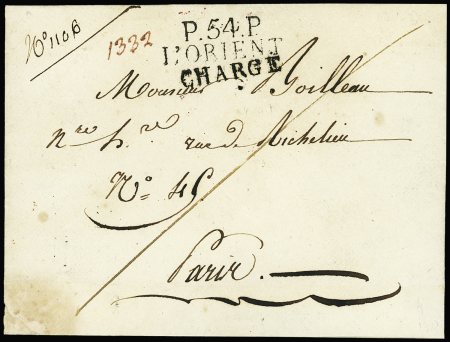 N° 1106
1332
P.54.P.
L'ORIENT
CHARGÉ
Monsieur Boilleau
nre hre rue de Richelieu
N° 45
Paris.